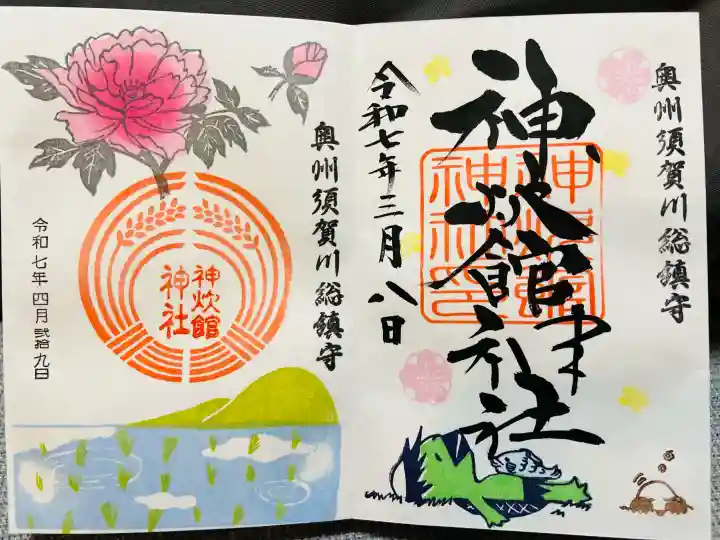 奥州須賀川総鎮守
神炊館神社
令和七年三月八日
奥州須賀川総鎮守
神炊館
神社
令和七年四月弐拾九日